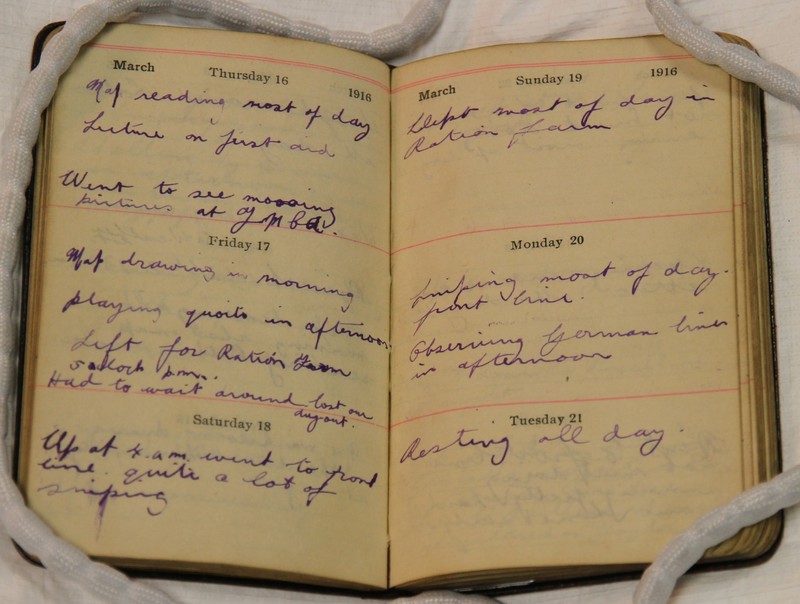 March Thursday 16 1916
Map reading most of day
Lecture on first aid
Went to see mooving
pictures at YMCA.
Friday 17
Map drawing in morning
playing quoits in afternoon
Left for Ration Farm
5 oclock p.m.
Had to wait around lost our
dugout.
Saturday 18
Up at 4. a.m. went to front
line. quite a lot of
sniping
March Sunday 19 1916
Slept most of day in
Ration farm
Monday 20
Sniping most of day.
front line.
Observing German lines
in afternoon
Tuesday 21
Resting all day.